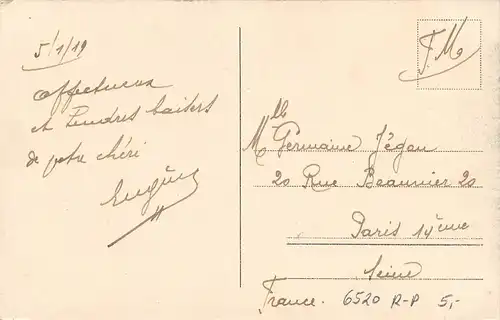 5/1/19
affectueux
et tendres baisers
de votre chéri
Eugène
F.M
Mlle Germaine Jégou
20 Rue Beaunier 20
Paris 14ème
Seine
France. 6520 R-P 5,-